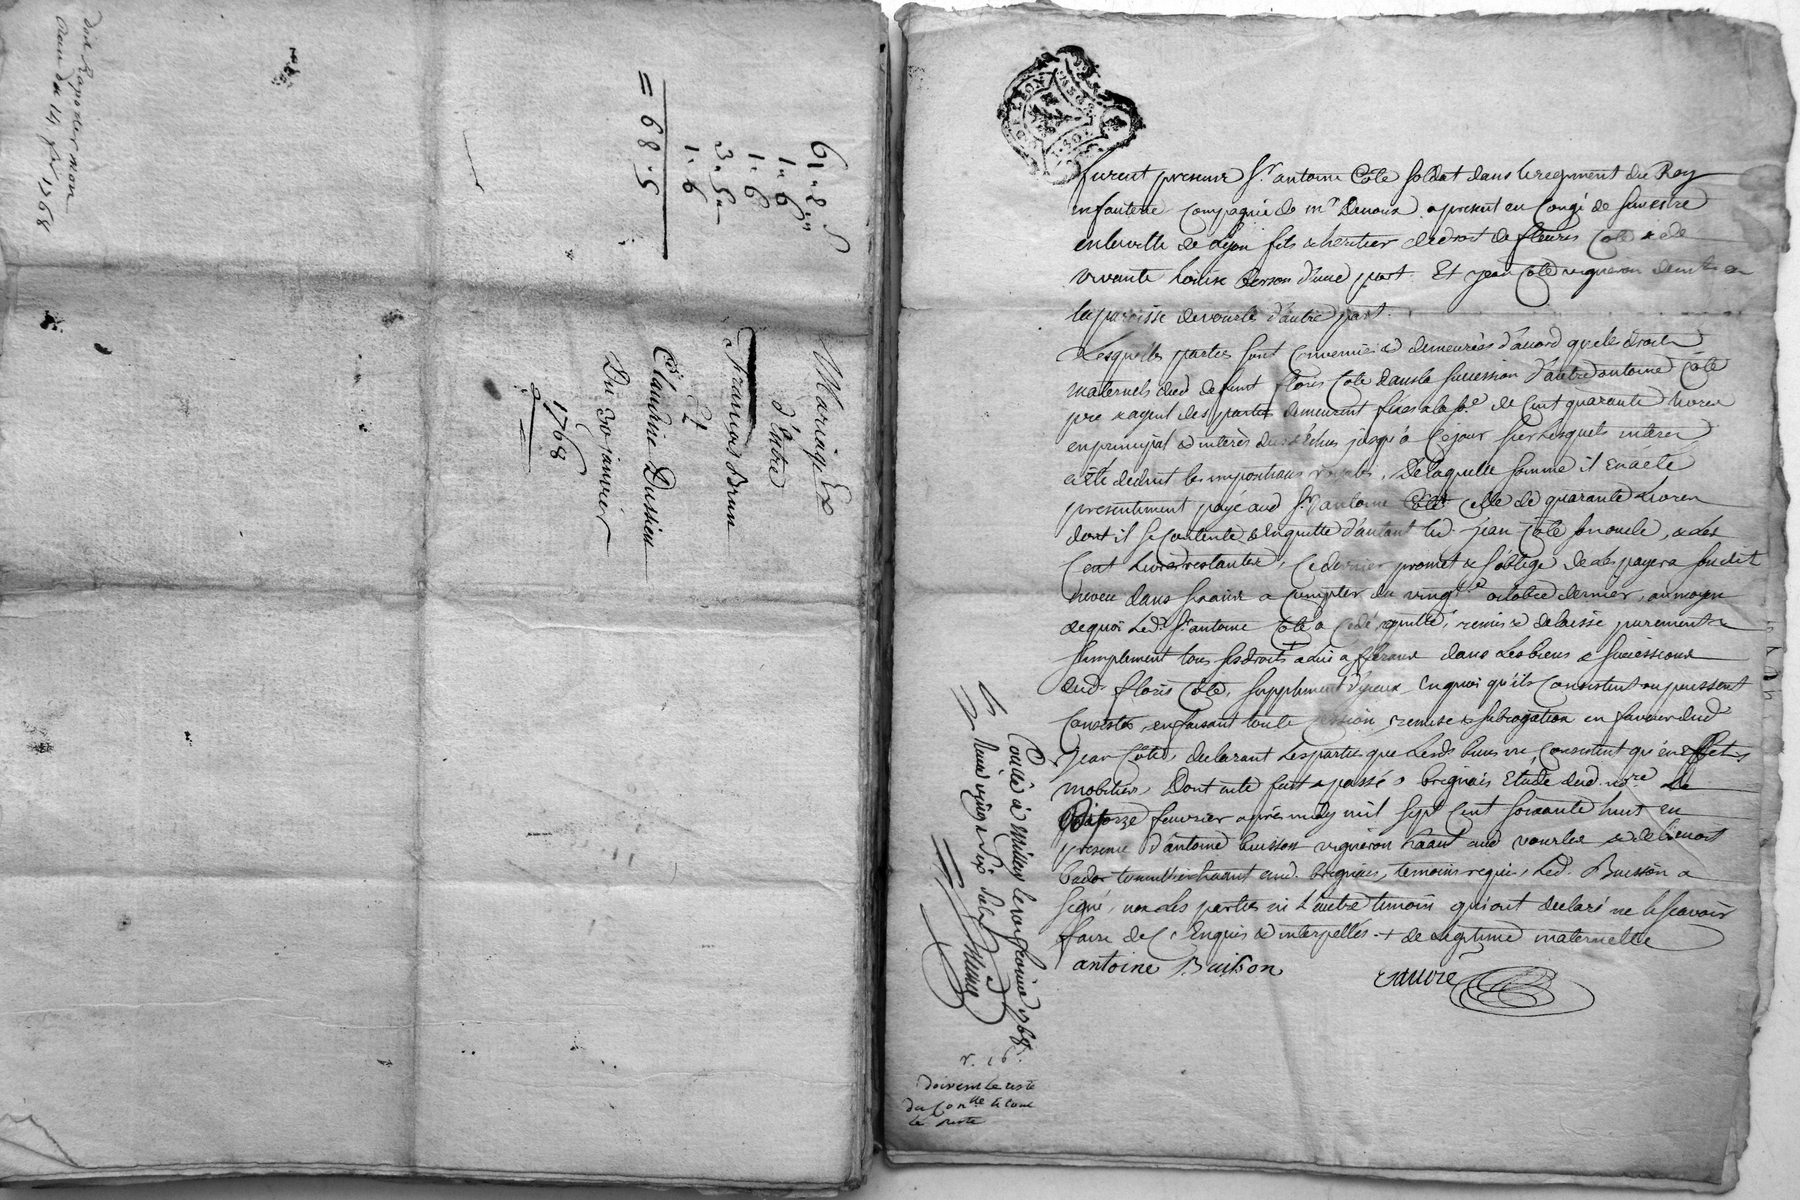 doit rapporter mon
du 14 fev 1768
6 " 8 " 5
1 " 6
1 " 6
3 " 5 "
1 " 6
= 68 " 5
Mariage
d'Entre
François Brun
Et
Claudine Dussieu
Du 30 janvier
1768
furent presens Sr antoine Côte soldat dans le regiment du Roy
infanterie Compagnie de mr Devoux apresent en Congé de semestre
en la ville de Lyon fils & heritier de droit de fleuris Côte & de
vivante Louise d'une part. Et jean Côte vigneron demt en
la paroisse de vourle d'autre part.
Lesquelles parties sont Convenues & demeurées d'accord que les droits
maternels dud defunt floris Côte dans la succession d'autre antoine Côte
pere & agent des parties demeurent fixés a la se de Cent quarante livres
en principal & interès dus & échus jusqu'à Ce jour sur lesquels interes
a été deduit les impositions royales, De laquelle somme il en a été
presentement payé aud Sr antoine Côte celle de quarante Livres
dont il se Contente & en quitte d'autant led jean Côte son oncle, & les
Cent Livres restantes, Ce dernier promet & s'oblige de les payer a sondit
neveu dans a Compter du vingt octobre dernier, au moyen
de quoi led. Sr antoine Côte a Cedé, quitté, remis & delaissé purement &
simplement tous ses droits a lui afferans dans les biens & successions
dud. floris Côte, supplement d'iceux, En quoi qu'ils Consistent ou puissent
Consister, en faisant toute Cession, remise & subrogation en faveur dud
jean Côte, declarant les parties que lesd. biens ne Consistent qu'en Effets
mobiliers, Dont acte fait & passé a brignais Etude dud. nore. Le
quatorze fevrier après midy mil sept cent soixante huit en
presence d'antoine buisson vigneron habant aud vourles & de benoit
habant aud. brignais, temoins requis, Led. Buisson a
signé, non les parties ni l'autre temoin qui ont declaré ne le scavoir
faire de Ce Enquis & interpellés. + de legitime maternelle
antoine Buisson
Conlé à millery le vingt 1768
r. 16s.
doivent le reste
du Conlle & tout
le reste